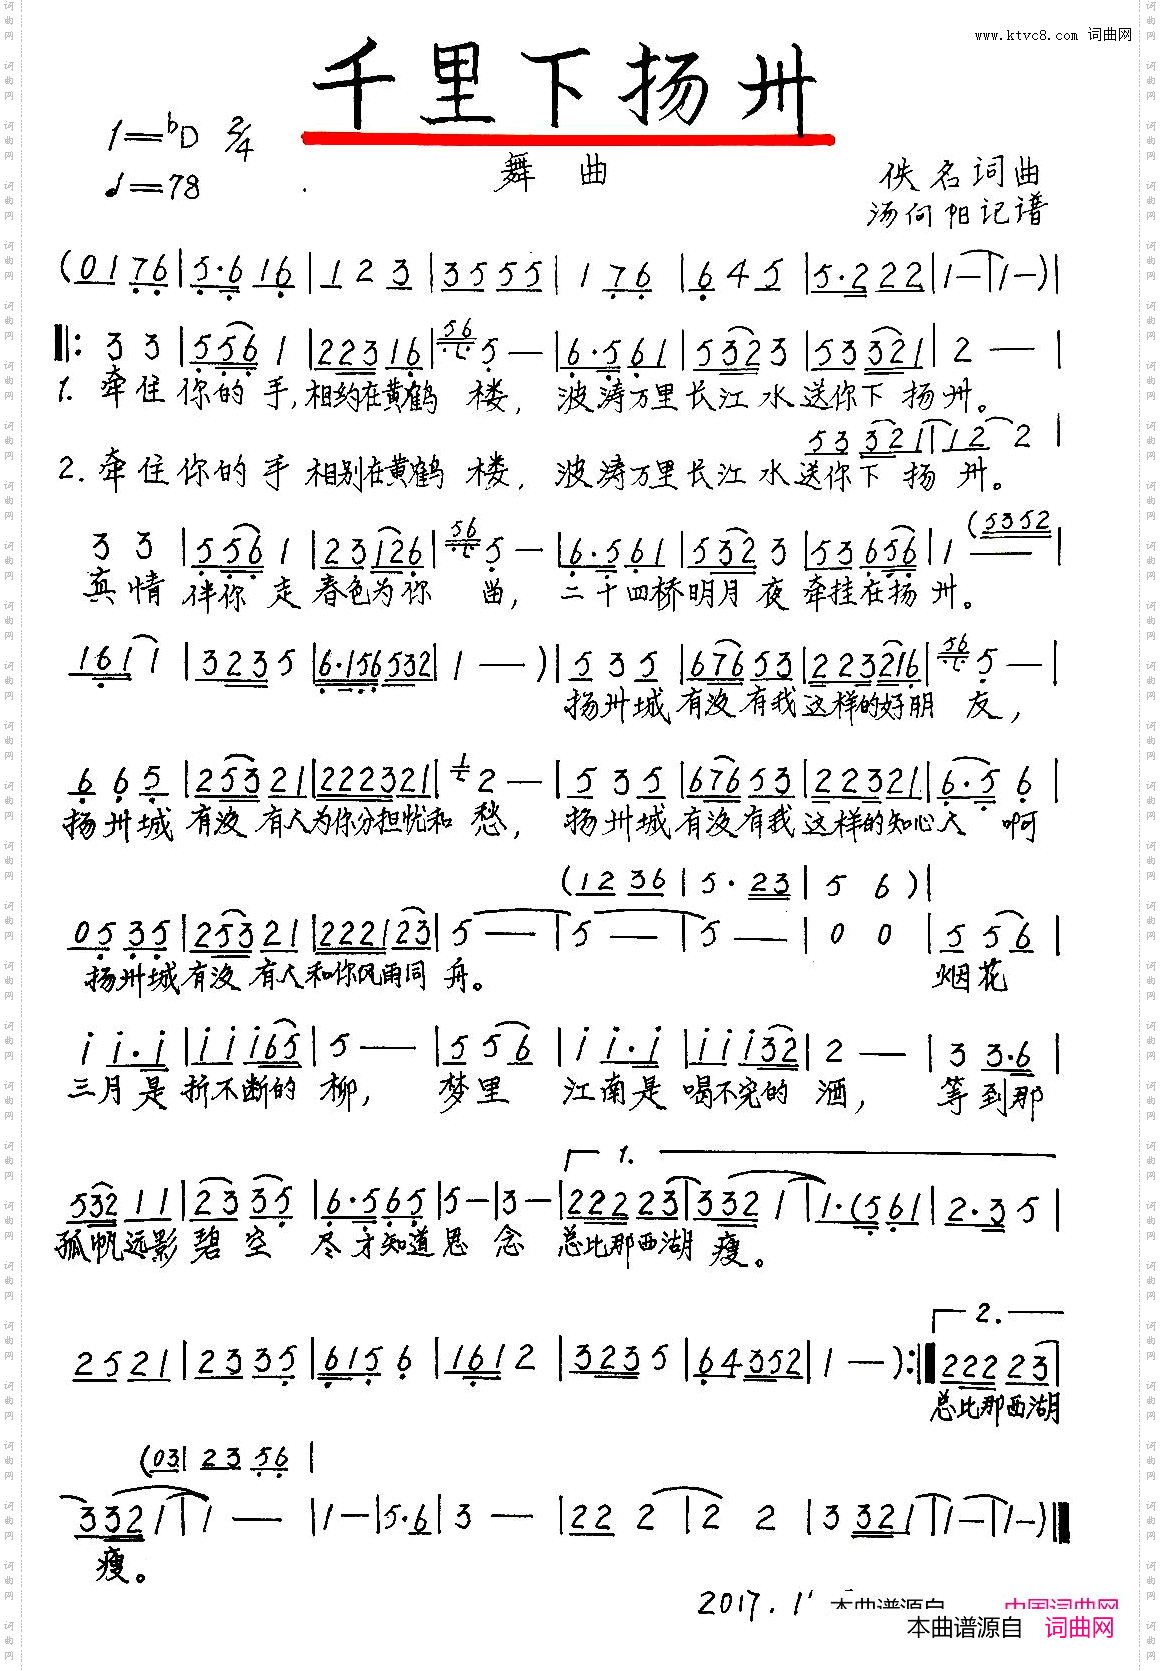 www.ktvc8.com 词曲网
千里下扬州
1=♭D 2/4
♩=78
舞曲
佚名词曲
汤向阳记谱
(0 1 7 6 | 5·6 1 6 | 1 2 3 | 3 5 5 5 | 1 7 6 | 6 4 5 | 5·2 2 2 | 1 — | 1 —) |
‖: 3 3 | 5 5 6 1 | 2 2 3 1 6 | 56 5 — | 6·5 6 1 | 5 3 2 3 | 5 3 3 2 1 | 2 — |
1. 牵住你的手,相约在黄鹤楼,波涛万里长江水送你下扬州。
5 3 3 2 1 | 1 2 2 |
2. 牵住你的手相别在黄鹤楼,波涛万里长江水送你下扬州。
(5 3 5 2
3 3 | 5 5 6 1 | 2 3 1 2 6 | 56 5 — | 6·5 6 1 | 5 3 2 3 | 5 3 6 5 6 | 1 — |
真情伴你走春色为你留,二十四桥明月夜牵挂在扬州。
1 6 1 1 | 3 2 3 5 | 6·1 5 6 5 3 2 | 1 — ) | 5 3 5 | 6 7 6 5 3 | 2 2 3 2 1 6 | 56 5 — |
扬州城有没有我这样的好朋友,
6 6 5 | 2 5 3 2 1 | 2 2 2 3 2 1 | 1 2 — | 5 3 5 | 6 7 6 5 3 | 2 2 3 2 1 | 6·5 6 |
扬州城有没有人为你分担忧和愁,扬州城有没有我这样的知心人啊
(1 2 3 6 | 5·2 3 | 5 6 ) |
0 5 3 5 | 2 5 3 2 1 | 2 2 2 1 2 3 | 5 — | 5 — | 5 — | 0 0 | 5 5 6 |
扬州城有没有人和你风雨同舟。烟花
i i·i | i i i 6 5 | 5 — | 5 5 6 | i i·i | i i i 3 2 | 2 — | 3 3·6 |
三月是折不断的柳,梦里江南是喝不完的酒,等到那
1.
5 3 2 1 1 | 2 3 3 5 | 6·5 6 5 | 5 — | 3 — | 2 2 2 2 3 | 3 3 2 1 | 1·(5 6 1 | 2·3 5 |
孤帆远影碧空尽才知道思念总比那西湖瘦。
2.
2 5 2 1 | 2 3 3 5 | 6 1 5 6 | 1 6 1 2 | 3 2 3 5 | 6 4 3 5 2 | 1 — ) :‖ 2 2 2 2 3 |
总比那西湖
(0 3 | 2 3 5 6 |
3 3 2 1 | 1 — | 1 — | 5·6 | 3 — | 2 2 2 | 2 2 | 3 3 2 1 | 1 — | 1 —) ‖
瘦。
2017.1
本曲谱源自 中国词曲网
本曲谱源自 词曲网